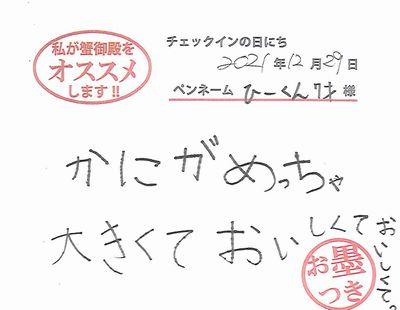 私が蟹御殿を
オススメ
します!!
チェックインの日にち
2021年12月29日
ペンネーム ひーくん7才 様
かにがめっちゃ
大きくて おいしくて
おいしくて。
お墨
つき